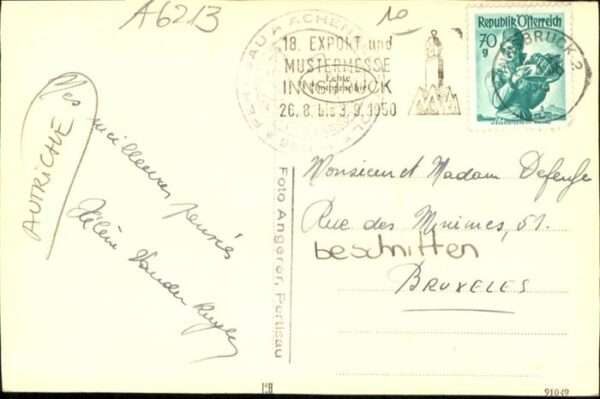 A6213
10
18. EXPORT und
MUSTERMESSE
INNSBRUCK
26.8. bis 3.9. 1950
Republik Österreich
70
g
INNSBRUCK 2
AUTRICHE
Mes meilleures pensées
Hélène Vander
Foto Angerer, Pertisau
Monsieur et Madam Defense
Rue des Minimes, 51.
beschnitten
BRUXELES
91049